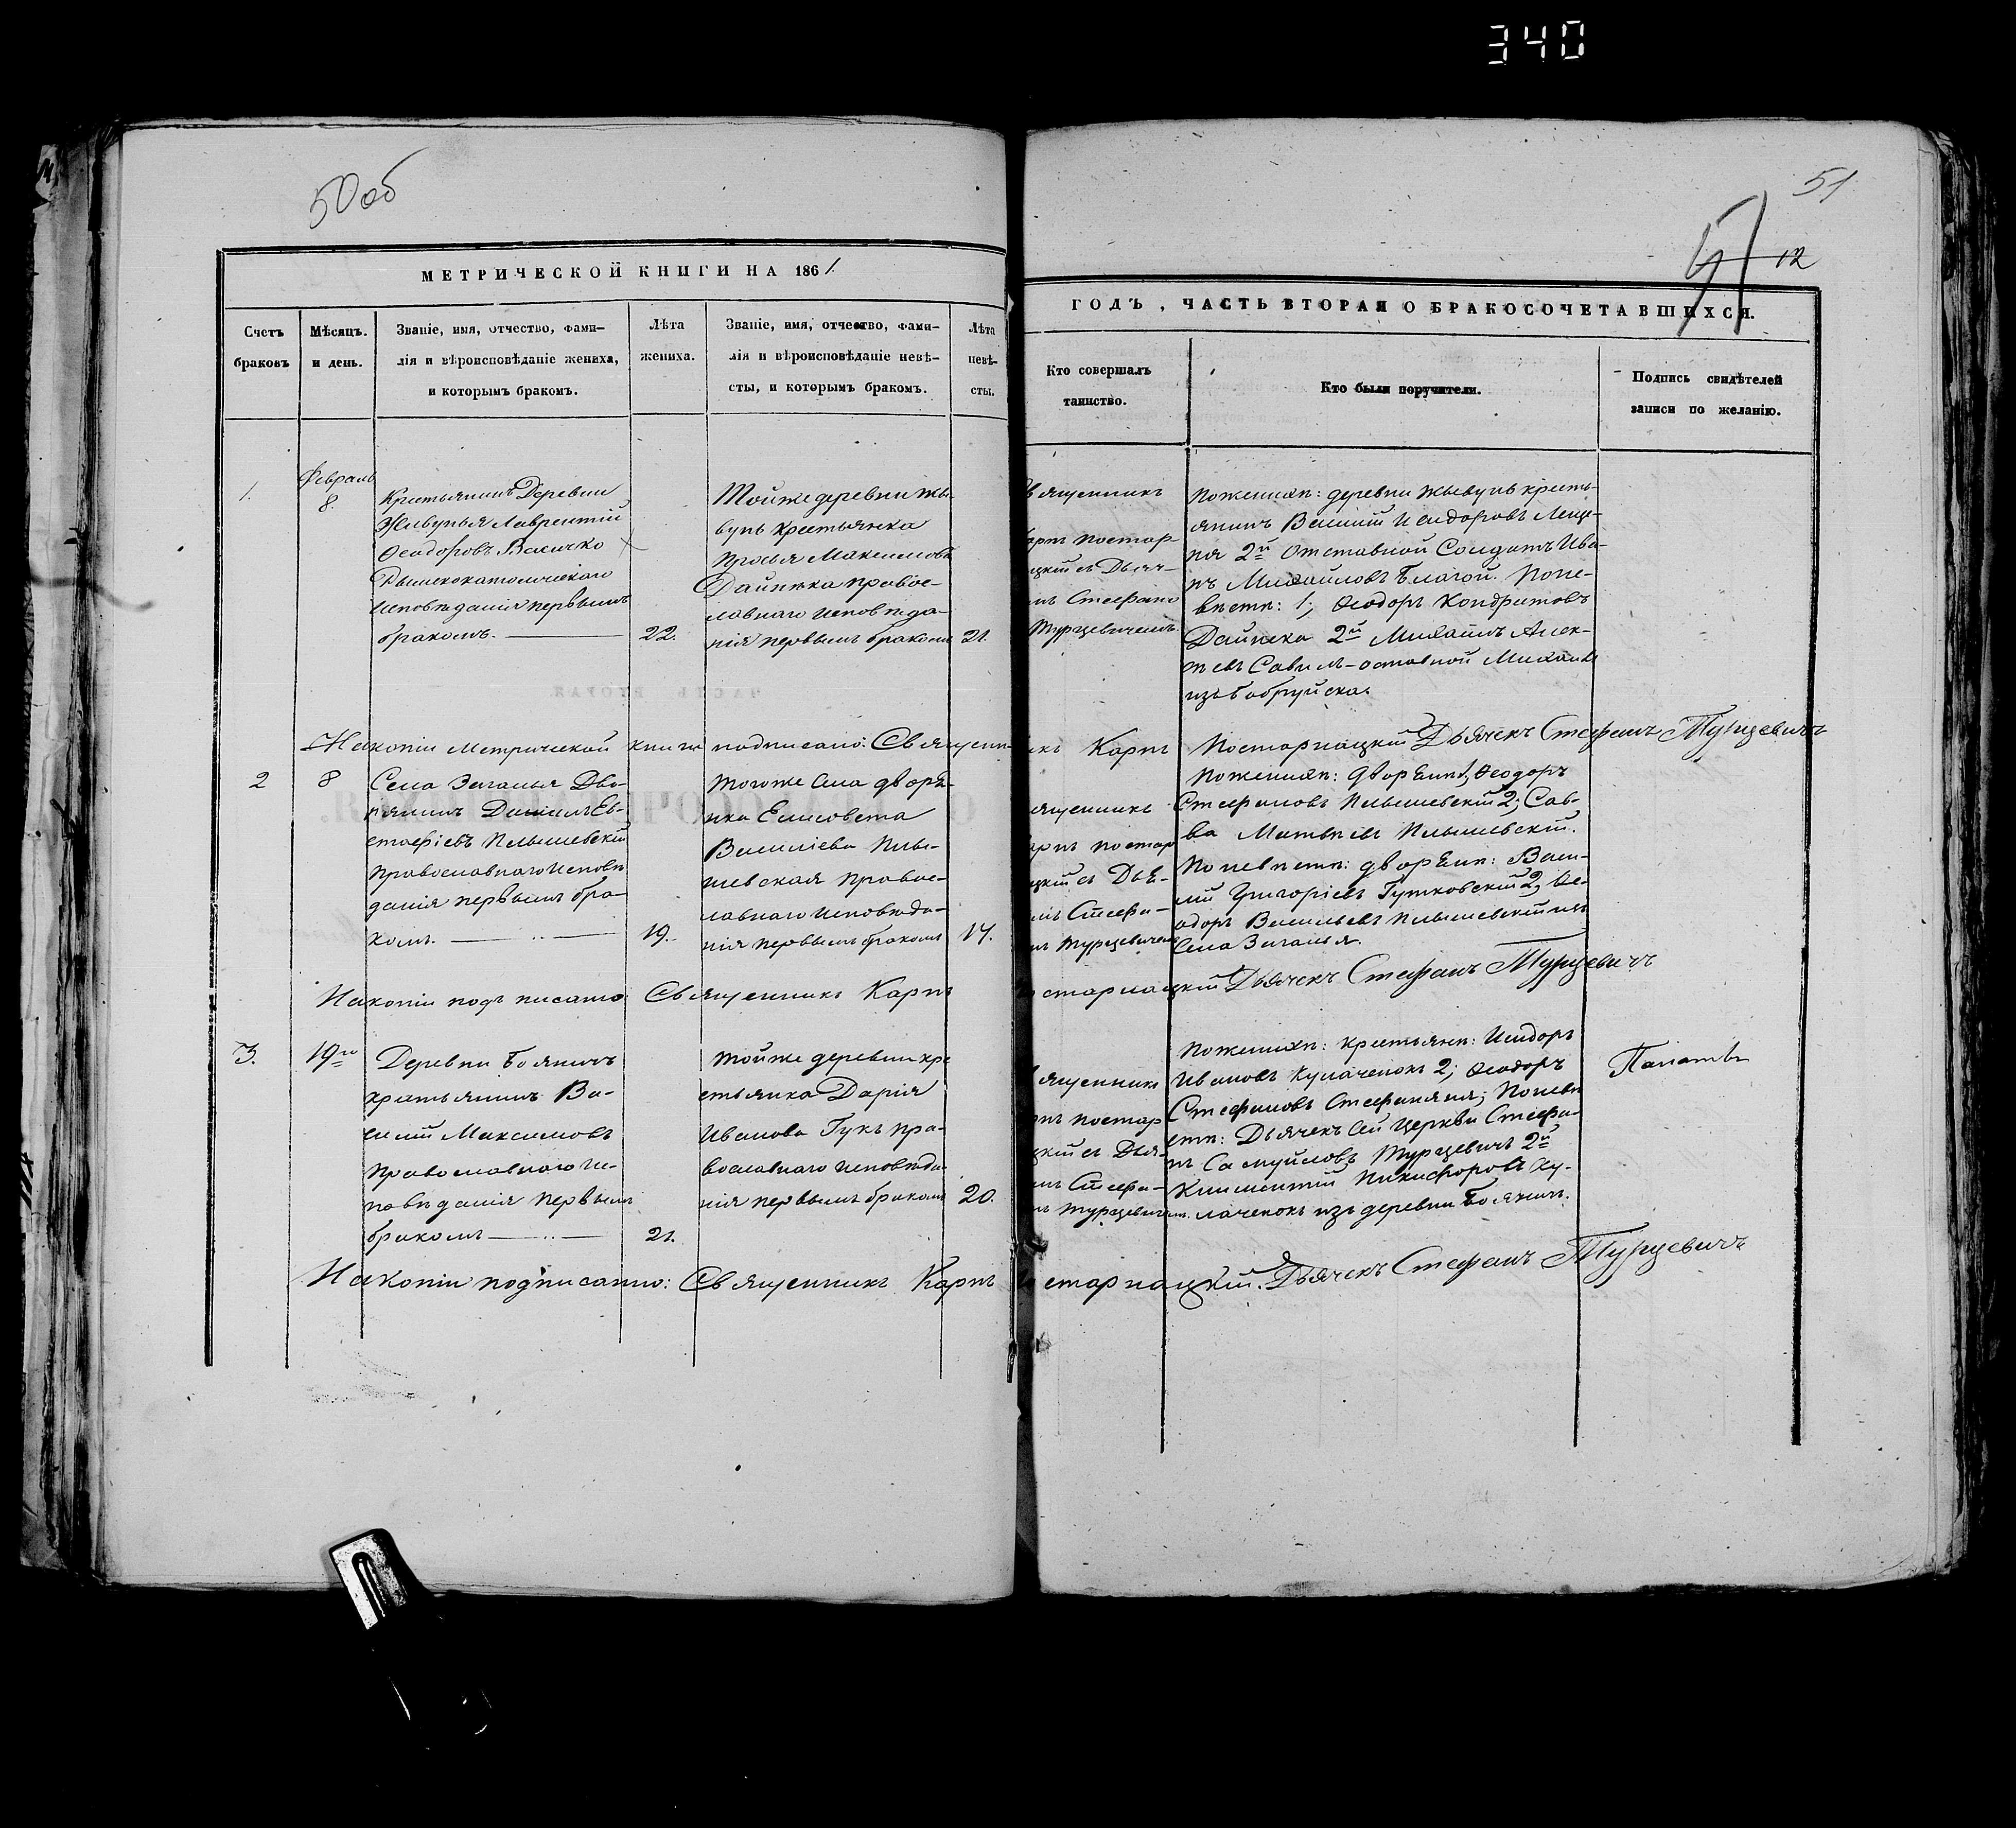 340
50 об
51
12
МЕТРИЧЕСКОЙ КНИГИ НА 1861
ГОДЪ, ЧАСТЬ ВТОРАЯ О БРАКОСОЧЕТАВШИХСЯ.
Счетъ браковъ
Мѣсяцъ. и день.
Званіе, имя, отчество, фами-
лія и вѣроисповѣданіе жениха,
и которымъ бракомъ.
Лѣта
жениха.
Званіе, имя, отчество, фами-
лія и вѣроисповѣданіе невѣ-
сты, и которымъ бракомъ.
Лѣта
невѣ-
сты.
Кто совершалъ
таинство.
Кто были поручители.
Подпись свидѣтелей
записи по желанію.
1.
Февраль
8.
Крестьянинъ Деревни
Жывунья Лаврентій
Ѳеодоровъ Василько
Рымскокатолическаго
Исповѣданія первымъ
бракомъ.
22.
Тойже деревни Жы-
вунь крестьянка
Просья Максимова
Дайнека правос-
лавнаго исповѣда-
нія первымъ бракомъ
21.
вященникъ
арпъ Постар
цкій съ Дьяч-
мъ Стефано
Турцевичемъ
Поженихѣ: деревни Жывунь кресть-
янинъ Василій Исидоровъ
2й Отставной Солдатъ Ива-
нъ Михайловъ Благой. Поне-
вѣстѣ: 1; Ѳеодоръ Кондратовъ
Дайнека 2й Михаилъ Алек-
изъ Бобруйска
На копіи Метрической книги подписано: Священн
икъ Карпъ Постарнацкій Дьячекъ Стефанъ Турцевичъ
2
8
Села Заганья Дво-
рянинъ Даніилъ Ев-
стафіевъ Плышевскій
Православнаго Исповѣ
данія первымъ бра-
комъ.
19.
Тогоже села дворя-
нка Елисовета
Василіева Плы-
шевская правос-
лавнаго исповѣда-
нія первымъ бракомъ
17.
ященникъ
арпъ Постар
цкій съ Дья-
мъ Стефа-
мъ Турцевичем
Поженихѣ: дворянин: Ѳеодоръ
Стефановъ Плышевскій 2; Сав-
ва Матвѣевъ Плышевскій.
Поневѣстѣ: дворян: Васи-
лій Григоріевъ Гутковскій 2, Ѳе-
одоръ Васильевъ Плышевскій изъ
Села Заганья.
На копіи подъписано Священникъ Карпъ
остарнацкій Дьячекъ Стефанъ Турцевичъ
3.
19го
Деревни Боянич
крестьянинъ Ва-
силій Максимовъ
Православнаго Ис-
повѣданія первымъ
бракомъ
21.
Тойже деревни кре
стьянка Дарія
Иванова Гукъ пра-
вославнаго исповѣда-
нія первымъ бракомъ
20.
вященникъ
рпъ Постар
цкій съ Дья-
мъ Стефа-
мъ Турцевичем.
Поженихѣ: крестьянѣ: Исидоръ
Ивановъ Кулаченокъ 2; Ѳеодоръ
Стефановъ Стефаняня; Поневѣ
стѣ: Дьячекъ сей Церкви Стефа-
нъ Самуйловъ Турцевичъ 2й
Климентій Никифоровъ Ку-
лаченокъ изъ деревни Боянич.
На копіи подписанно: Священникъ Карпъ
остарнацкій. Дьячекъ Стефанъ Турцевичъ